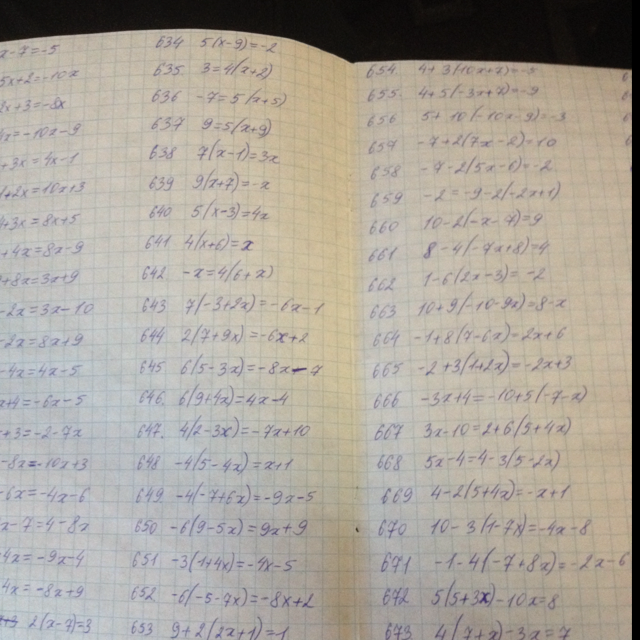 x-7=-5
5x+2=-10x
+3=-9x
x=-10x-9
+3x=4x-1
+2x=10x+3
+3x=8x+5
+4x=8x-9
+8x=3x+9
-2x=3x-10
-2x=8x+9
-4x=4x-5
x+4=-6x-5
+3=-2-7x
-8x=-10x+3
-6x=-4x-6
x-7=4-8x
4x=-9x-4
4x=-8x+9
2(x-7)=3
634 5(x-9)=-2
635 3=4(x+2)
636 -7=5(x+5)
637 9=5(x+9)
638 7(x-1)=3x
639 9(x+7)=-x
640 5(x-3)=4x
641 4(x+6)=x
642 -x=4(6+x)
643 7(-3+2x)=-6x-1
644 2(7+9x)=-6x+2
645 6(5-3x)=-8x-7
646. 6(9+4x)=4x-4
647. 4(2-3x)=-7x+10
648 -4(5-4x)=x+1
649 -4(-7+6x)=-9x-5
650 -6(9-5x)=9x+9
651 -3(1+4x)=-4x-5
652 -6(-5-7x)=-8x+2
653 9+2(2x+1)=1
654 4+3(10x+7)=-5
655 4+5(-3x+7)=-9
656 5+10(-10x-9)=-3
657 -7+2(7x-2)=10
658 -7-2(5x-1)=-2
659 -2=-9-2(-2x+1)
660 10-2(-x-7)=9
661 8-4(-7x+8)=4
662 1-6(2x-3)=-2
663 10+9(-10-9x)=8-x
664 -1+8(7-6x)=2x+6
665 -2+3(1+2x)=-2x+3
666 -3x+4=-10+5(-7-x)
667 3x-10=2+6(5+4x)
668 5x-4=4-3(5-2x)
669 4-2(5+4x)=-x+1
670 10-3(1-7x)=-4x-8
671 -1-4(-7+8x)=-2x-6
672 5(5+3x)-10x=8
673 4(7+x)-3x=7